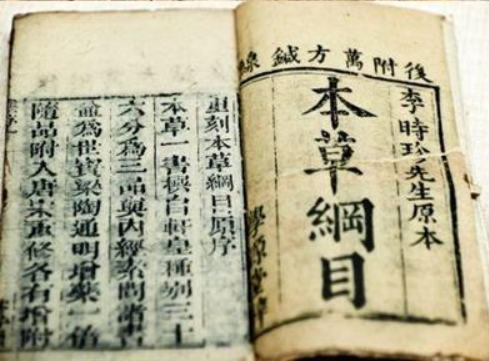 後附萬方鍼線
李時珍先生原本
本草綱目
學源堂
重刻本草綱目原序
本草一書自軒皇種別三十
六分爲三品與內經素問諸書
爲世寳梁陶通明增藥一倍
隨品附入唐宋重修各有增附